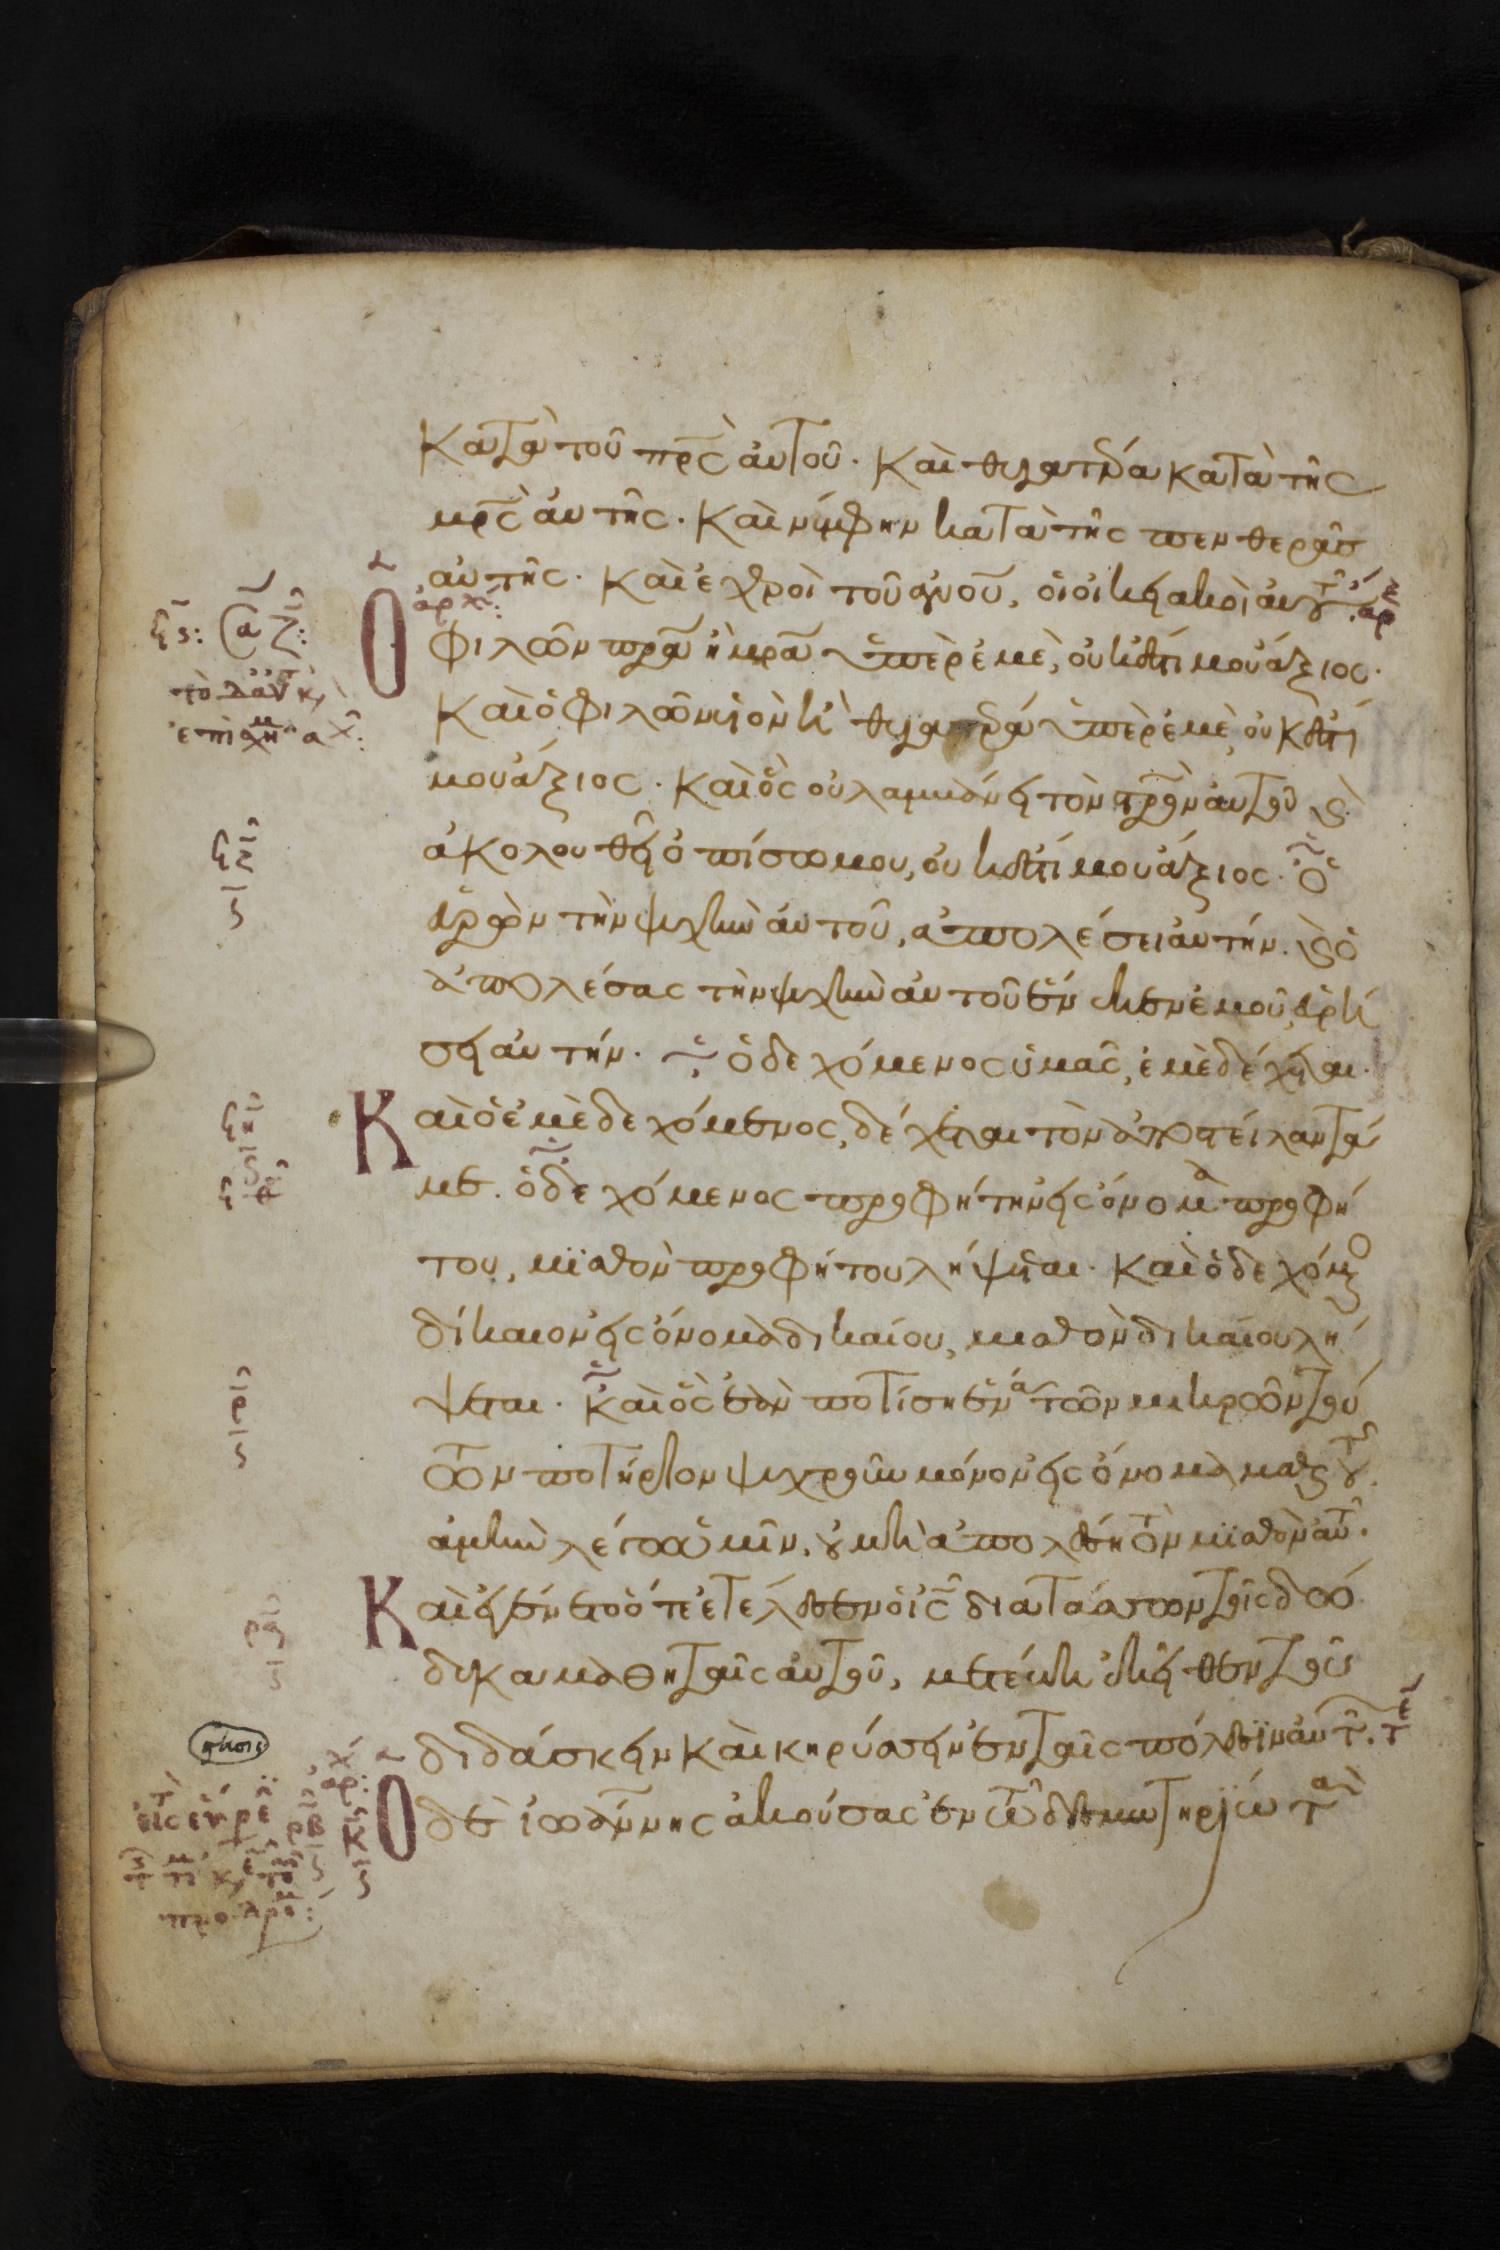 κατὰ τοῦ πρς αὐτοῦ. καὶ θυγατέρα κατὰ τῆς
μρς αὐτῆς. καὶ νύμφην κατὰ τῆς πενθερᾶς
αὐτῆς. καὶ ἐχθροὶ τοῦ ἀνου, οἱ οἰκειακοὶ αὐτοῦ.
ἀρχ
Ὁ φιλῶν πρα ἢ μρα ὑπὲρ ἐμὲ, οὐκ ἔστι μου ἄξιος.
καὶ ὁ φιλῶν υἱὸν ἢ θυγατέρα ὑπὲρ ἐμὲ, οὐκ ἔστι
μου ἄξιος. καὶ ὃς οὐ λαμβάνει τὸν στρον αὐτοῦ καὶ
ἀκολουθεῖ ὀπίσω μου, οὐκ ἔστι μου ἄξιος. ὁ
εὑρὼν τὴν ψυχὴν αὐτοῦ, ἀπολέσει αὐτήν. καὶ ὁ
ἀπολέσας τὴν ψυχὴν αὐτοῦ ἕνεκεν ἐμοῦ, εὑρή
σει αὐτήν. ὁ δεχόμενος ὑμᾶς, ἐμὲ δέχεται.
Καὶ ὁ ἐμὲ δεχόμενος, δέχεται τὸν ἀποστείλαντά
με. ὁ δεχόμενος προφήτην εἰς ὄνομα προφή
του, μϊσθὸν προφήτου λήψεται. καὶ ὁ δεχόμενος
δίκαιον εἰς ὄνομα δικαίου, μισθὸν δικαίου λή
ψεται. καὶ ὃς ἐὰν ποτίση ἕνα τῶν μικρῶν τού
των ποτήριον ψυχροῦ μόνον εἰς ὄνομα μαθητοῦ.
ἀμὴν λέγω ὑμῖν, οὐ μὴ ἀπολέση τὸν μϊσθὸν αὐτοῦ.
Καὶ ἐγένετο ὅτε ἐτέλεσεν ὁ ις διατάσσων τοῖς δώ
δεκα μαθηταῖς αὐτοῦ, μετέβη ἐκεῖθεν τοῦ
διδάσκειν καὶ κηρύσσειν ἐν ταῖς πόλεσϊν αὐτῶν. τε
Ὁ δὲ ἰωάννης ἀκούσας ἐν τῶ δεσμωτηρίω τὰ